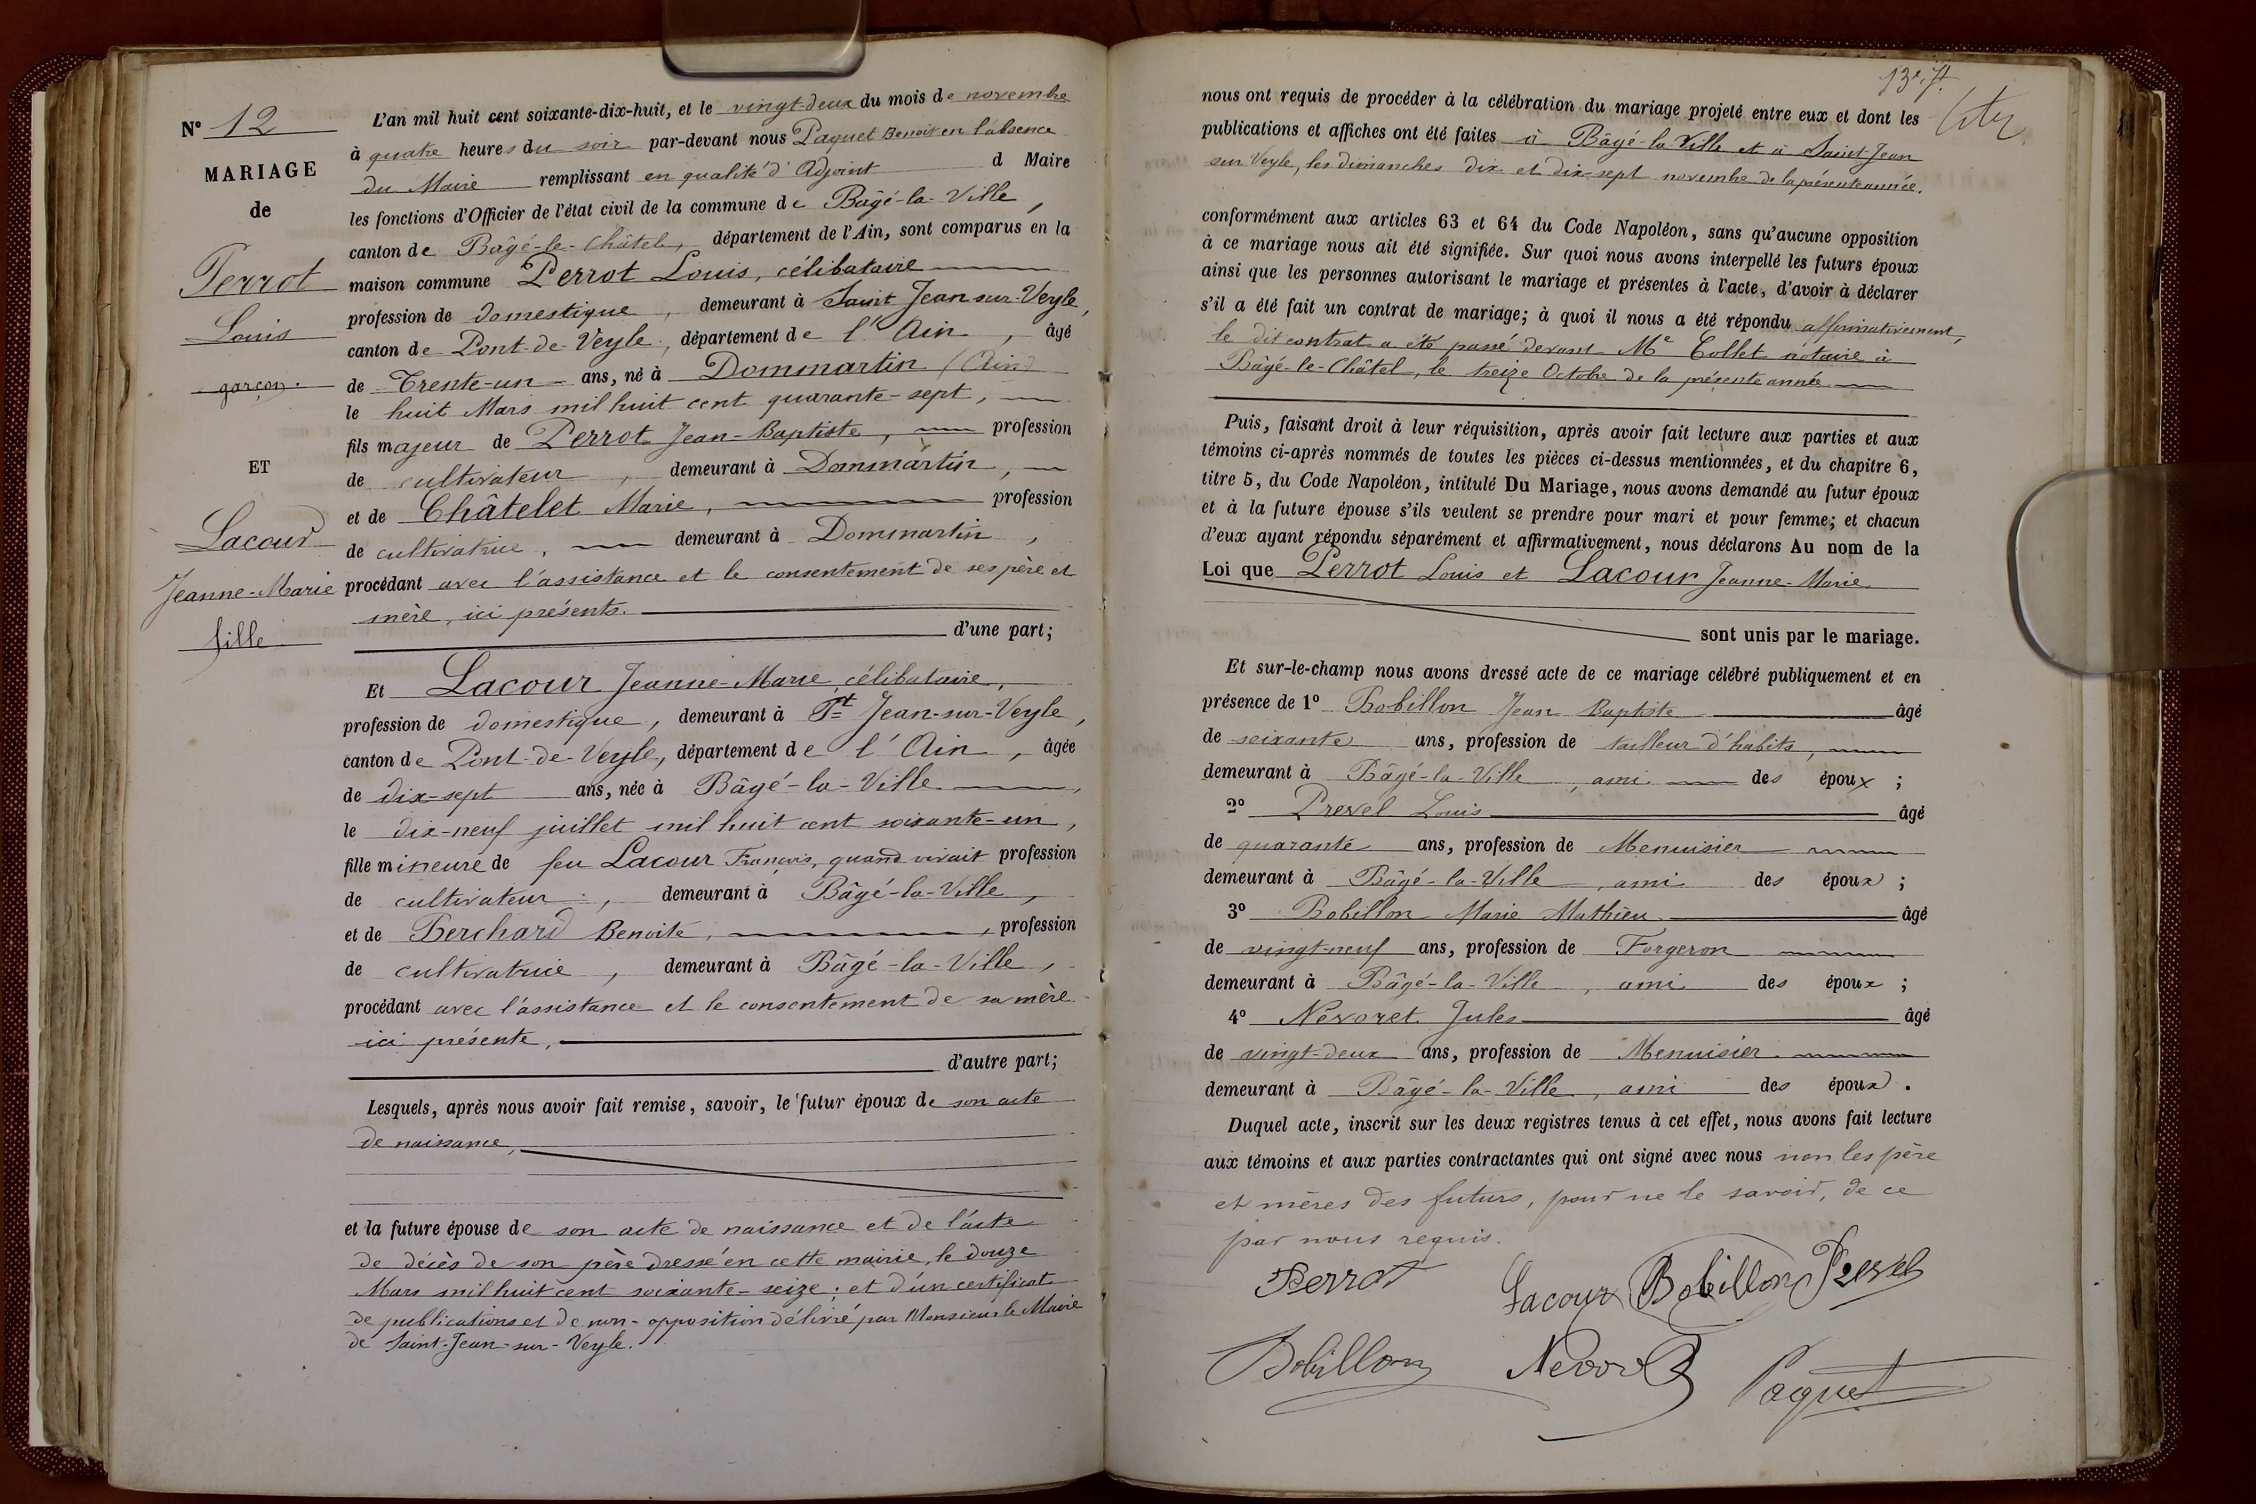 Nº 12
MARIAGE
de
Perrot
Louis
garçon.
ET
Lacour
Jeanne-Marie
fille
L'an mil huit cent soixante-dix-huit, et le vingt-deux du mois de novembre
à quatre heures du soir par-devant nous Paquet Benoit en l'absence
du Maire remplissant en qualité d'Adjoint d Maire
les fonctions d'Officier de l'état civil de la commune de Bâgé-la-Ville,
canton de Bâgé-le-Châtel, département de l'Ain, sont comparus en la
maison commune Perrot Louis, célibataire
profession de domestique, demeurant à Saint Jean-sur-Veyle,
canton de Pont-de-Veyle, département de l'Ain, âgé
de Trente-un ans, né à Dommartin (Ain)
le huit Mars mil huit cent quarante-sept,
fils majeur de Perrot Jean-Baptiste, profession
de cultivateur, demeurant à Dommartin,
et de Châtelet Marie, profession
de cultivatrice, demeurant à Dommartin,
procédant avec l'assistance et le consentement de ses père et
mère, ici présents.
d'une part;
Et Lacour Jeanne-Marie, célibataire,
profession de domestique, demeurant à St Jean-sur-Veyle,
canton de Pont-de-Veyle, département de l'Ain, âgée
de dix-sept ans, née à Bâgé-la-Ville,
le dix-neuf juillet mil huit cent soixante-un,
fille mineure de feu Lacour François, quand vivait profession
de cultivateur, demeurant à Bâgé-la-Ville,
et de Berchard Benoite, profession
de cultivatrice, demeurant à Bâgé-la-Ville,
procédant avec l'assistance et le consentement de sa mère
ici présente,
d'autre part;
Lesquels, après nous avoir fait remise, savoir, le futur époux de son acte
de naissance,
et la future épouse de son acte de naissance et de l'acte
de décès de son père dressé en cette mairie, le douze
Mars mil huit cent soixante-seize; et d'un certificat
de publications et de non-opposition délivré par Monsieur le Maire
de Saint-Jean-sur-Veyle.
nous ont requis de procéder à la célébration du mariage projeté entre eux et dont les
publications et affiches ont été faites à Bâgé-la-Ville et à Saint Jean
sur Veyle, les dimanches dix et dix-sept novembre de la présente année.
conformément aux articles 63 et 64 du Code Napoléon, sans qu'aucune opposition
à ce mariage nous ait été signifiée. Sur quoi nous avons interpellé les futurs époux
ainsi que les personnes autorisant le mariage et présentes à l'acte, d'avoir à déclarer
s'il a été fait un contrat de mariage; à quoi il nous a été répondu affirmativement,
le dit contrat a été passé devant Me Collet notaire à
Bâgé-le-Châtel, le treize Octobre de la présente année
Puis, faisant droit à leur réquisition, après avoir fait lecture aux parties et aux
témoins ci-après nommés de toutes les pièces ci-dessus mentionnées, et du chapitre 6,
titre 5, du Code Napoléon, intitulé Du Mariage, nous avons demandé au futur époux
et à la future épouse s'ils veulent se prendre pour mari et pour femme; et chacun
d'eux ayant répondu séparément et affirmativement, nous déclarons Au nom de la
Loi que Perrot Louis et Lacour Jeanne-Marie
sont unis par le mariage.
Et sur-le-champ nous avons dressé acte de ce mariage célébré publiquement et en
présence de 1º Bobillon Jean Baptiste âgé
de soixante ans, profession de tailleur d'habits,
demeurant à Bâgé-la-Ville, ami des époux;
2º Prevel Louis âgé
de quarante ans, profession de Menuisier
demeurant à Bâgé-la-Ville, ami des époux;
3º Bobillon Marie Mathieu âgé
de vingt-neuf ans, profession de Forgeron
demeurant à Bâgé-la-Ville, ami des époux;
4º Névoret Jules âgé
de vingt-deux ans, profession de Menuisier
demeurant à Bâgé-la-Ville, ami des époux.
Duquel acte, inscrit sur les deux registres tenus à cet effet, nous avons fait lecture
aux témoins et aux parties contractantes qui ont signé avec nous non les père
et mères des futurs, pour ne le savoir, de ce
par nous requis.
Perrot Lacour Bobillon Prevel
Bobillon Nevoret Paquet